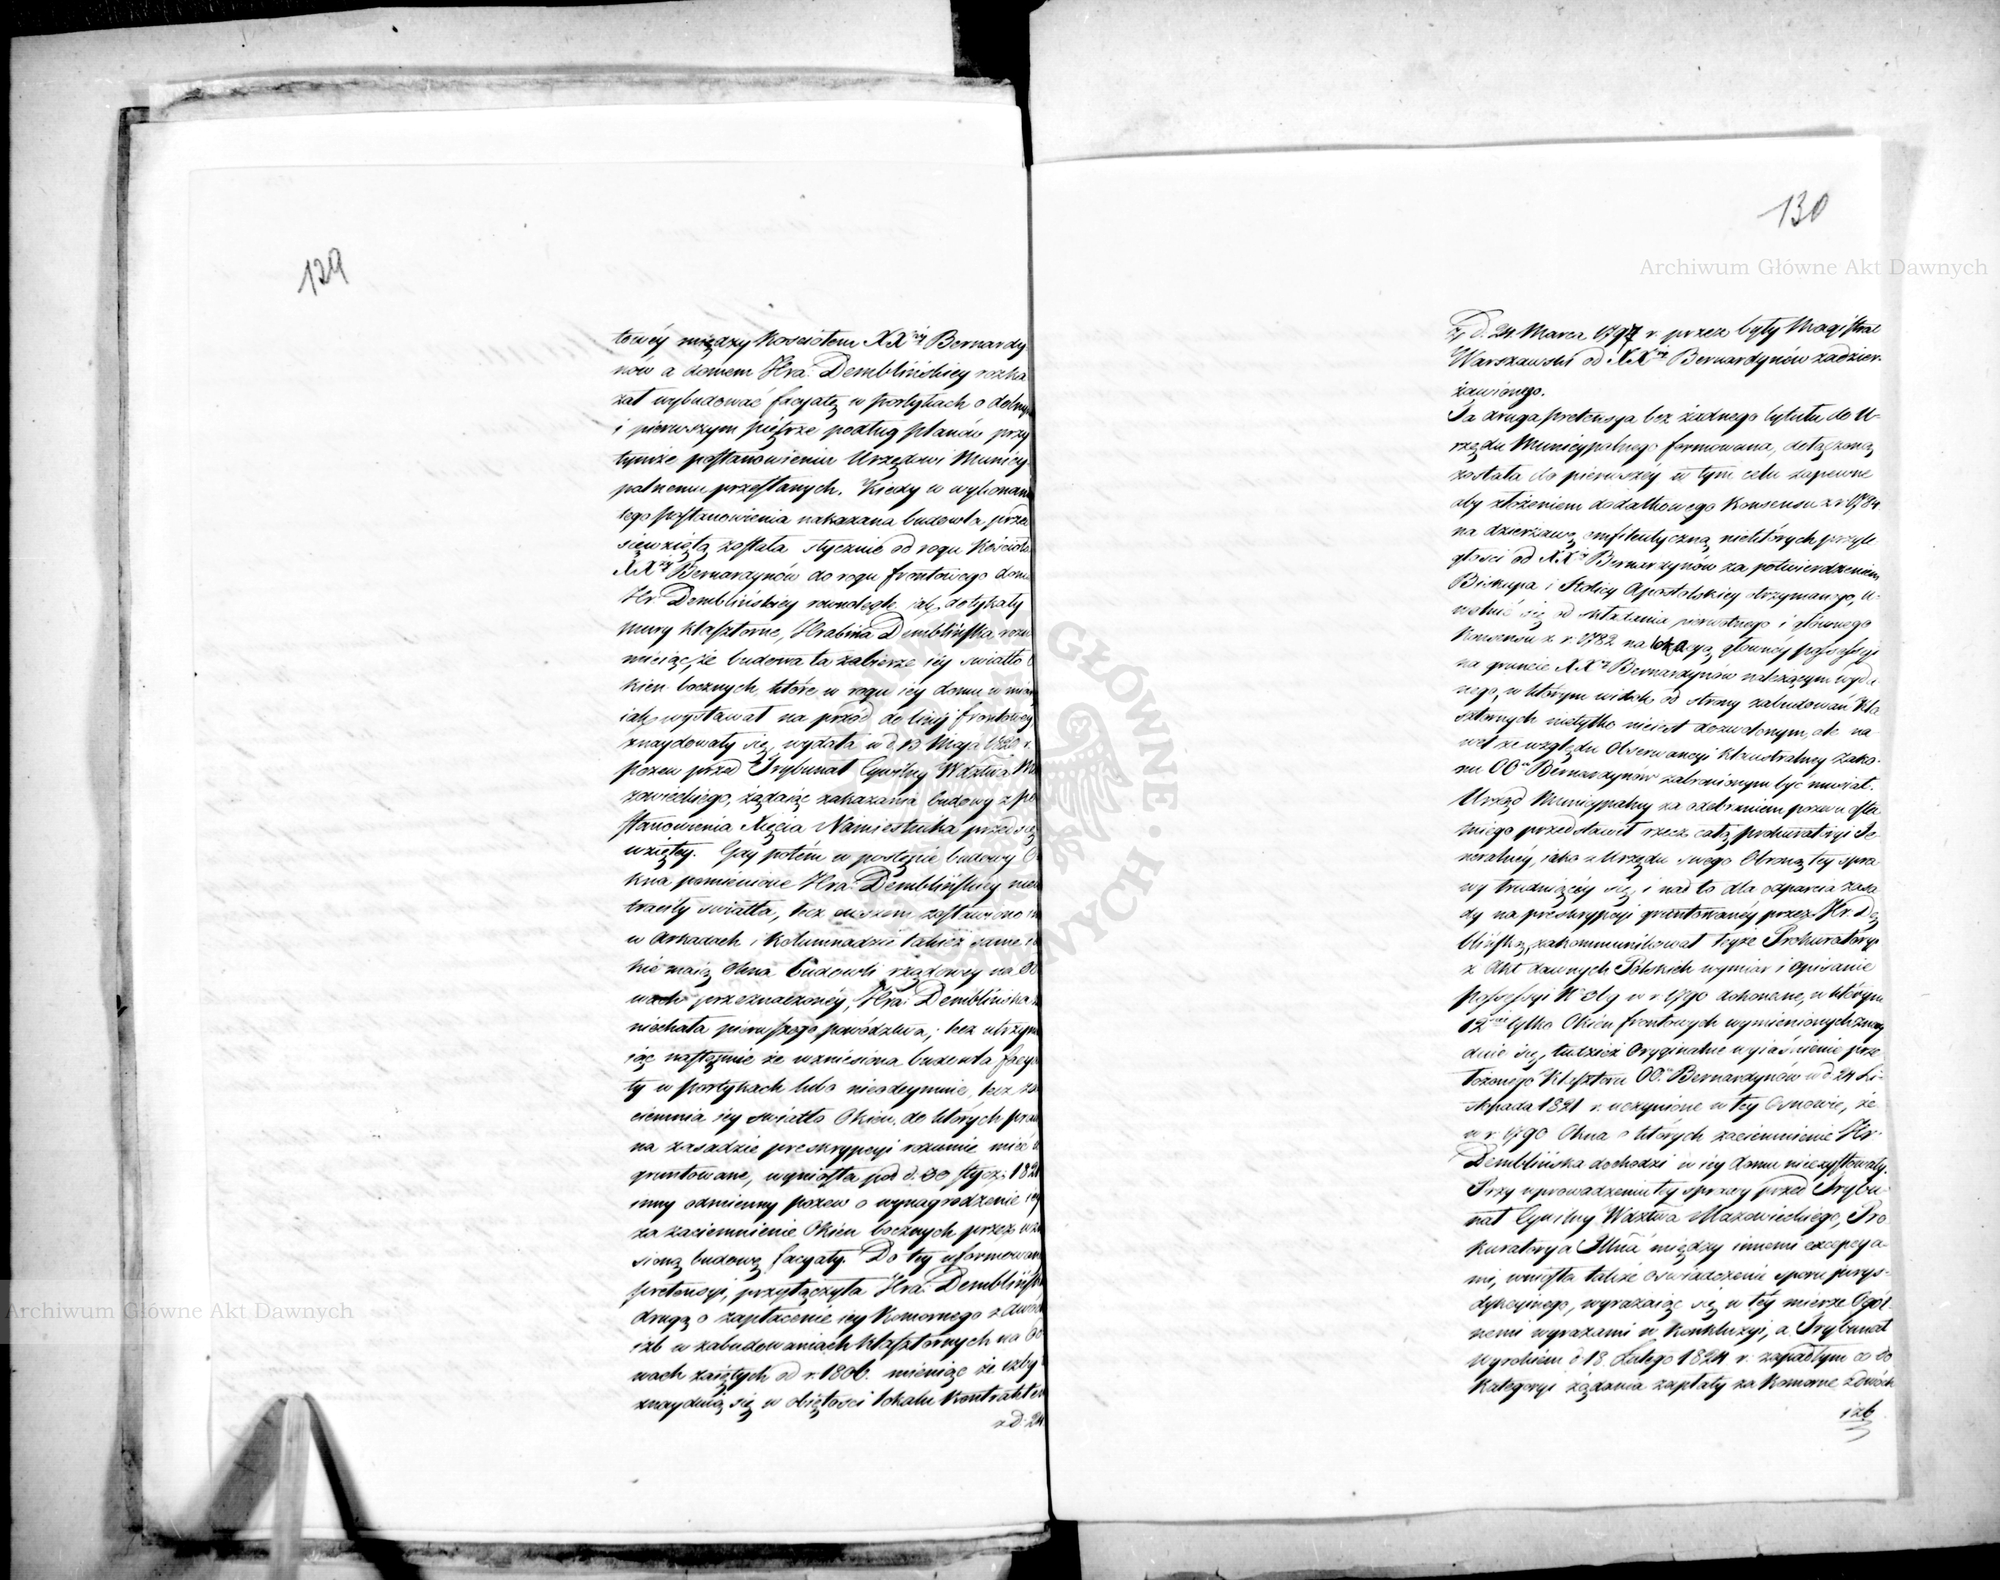 129
towéy między Kosciołem XXży Bernardy
nów a domem Hra: Demblińskiey rozka
zał wybudować facyatę w portykach o dolnym
i pierwszym piętrze podług planów przy
tymże postanowieniu Urzędowi Municy
palnemu przesłanych. Kiedy w wykonani
tego postanowienia nakazana budowla przed
sięwziętą została stycznie od rogu Kościoła
XXży Bernardynów do rogu frontowego domu
Hr. Demblińskiey równolegle iak dotykały
mury klasztorne, Hrabina Demblińska rozu
mieiąc, że budowa ta zabierze iéy swiatło O
kien bocznych które w rogu iéy domu w miarę
iak wystawał na przód do linij frontowéy
znaydowały się, wydała w d. 13 Maja 1820 r.
pozew przed Trybunał Cywilny Wdztwa Ma
zowieckiego, żądaiąc zakazania budowy z po
stanowienia Xięcia Namiestnika przedsię
wziętey. Gdy potém w postępie budowy O
kna pomienione Hra: Demblińskiey nieu
traciły swiatła, lecz owszem zostawiono im
w Arkadach i Kolumnadzie takież same ia
kie maią okna budowli rządowey na Od
wach przeznaczonéy, Hra: Demblińska za
niechała pierwszego powództwa, lecz utrzymu
iąc następnie że wzniesiona budowla facya
ty w portykach lubo nieodeymuie, lecz za
ciemnia iéy swiatło Okien, do których prawo
na zasadzie preskrypcyi rozumie mieć u
gruntowane, wyniosła pod d. 30 Stycz: 1821
inny odmienny pozew o wynagrodzenie iéy
za zaciemnienie Okien bocznych przez wznie
sioną budowę facyaty. Do téy uformowanéy
pretensyi, przyłączyła Hra: Demblińska
drugą o zapłacenie iéy Komornego z dwóch
izb w zabudowaniach klasztornych na Od
wach zaiętych od r. 1806. mieniąc że izby
znayduią się w obiętości lokalu Kontraktem
z d. 24
130
z d. 24 Marca 1797 r. przez były Magistrat
Warszawski od XXży Bernardynów zadzier-
żawionego.
Ta druga pretensya bez żadnego tytułu do U-
rzędu Municypalnego formowana, dołączoną
została do pierwszéy w tym celu zapewne
aby złożeniem dodatkowego Konsensu z r. 1784
na dzierżawę emfiteutyczną niektórych przyle
głości od XXży Bernardynów za potwierdzeniem
Biskupa i Stolicy Apostolskiey otrzymanego, u-
wolnić się od składania pierwotnego i głównego
Konsensu z r. 1782 na lokacyą głównéy possessyi
na gruncie XXży Bernardynów należącym wyda
nego, w którym widok od strony zabudowań Kla
sztornych nietylko nieiest dozwolonym, ale na
wet ze względu Obserwancyi klaustralney zako-
nu OO. Bernardynów zabronionym być musiał.
Urząd Municypalny za odebraniem pozwu osta
tniego przedstawił rzecz całą Prokuratoryi Je-
neralnéy, iako z Urzędu swego Obroną téy spra
wy trudniącéy się, i nad to dla odparcia zasa
dy na preskrypcyi gruntowanéy przez Hr. De
blińską, zakommunikował teyże Prokuratoryi
z Akt dawnych Polskich wymiar i opisanie
possessyi w r. 1790 dokonane, w którym
12 tylko Okien frontowych wymienionych znay
duie się, tudzież Oryginalne wyiaśnienie prze
łożonego Klasztoru OO. Bernardynów w d. 24 Li-
stopada 1821 r. uczynione w téy Osnowie, że
w r. 1790 Okna o których zaciemnienie Hr.
Demblińska dochodzi w iéy domu nieexystowały.
Przy wprowadzeniu téy sprawy przed Trybu-
nał Cywilny Wdztwa Mazowieckiego, Pro
kuratorya Jlna między innemi excepcya-
mi, wniosła także oswiadczenie sporu jurys-
dykcyinego, wyrażaiąc się w téy mierze Ogól
nemi wyrazami w Konkluzyi, a Trybunał
Wyrokiem d. 18 Lutego 1824 r. zapadłym co do
Kategoryi żądania zapłaty za Komorne z dwóch
izb
Archiwum Główne Akt Dawnych
Archiwum Główne Akt Dawnych